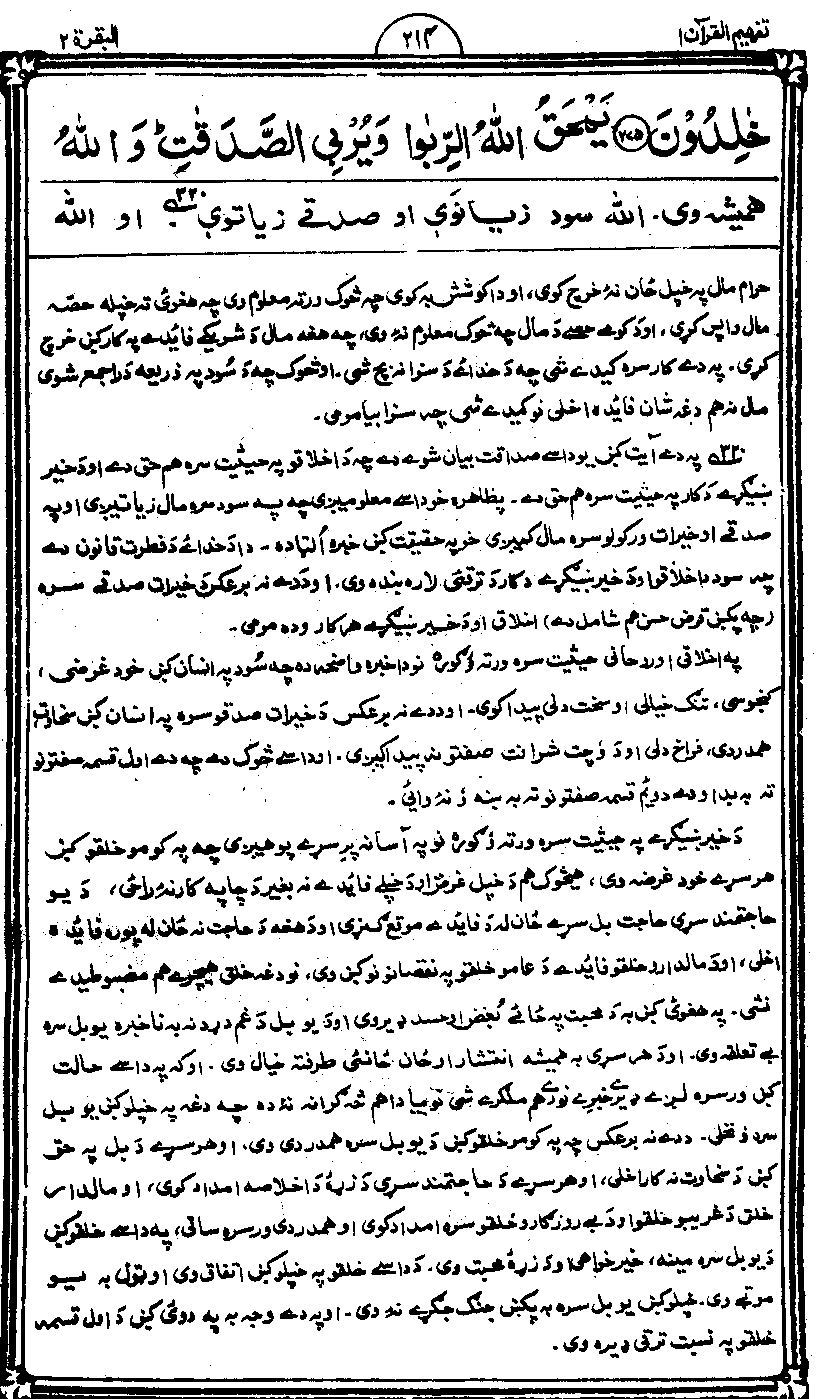 تفهيم القرآن ١
٢١٤
البقرة ٢
خٰلِدُوْنَ ﴿٢٧٥﴾ يَمْحَقُ اللّٰهُ الرِّبٰوا وَيُرْبِي الصَّدَقٰتِ ؕ وَ اللّٰهُ
هميشه وى. الله سود زيانوي او صدقے زياتوي ٣٢٠ او الله
حرام مال په خپل ځان نۀ خرچ كوى، او دا كوشش به كوى چه څوک ورته معلوم وى چه هغوئ ته خپله حصّه
مال واپس كړى، او د كومے حصے د مال چه څوک معلوم نۀ وى، چه هغه مال د شريكے فائدے په كار كښ خرچ
كړى. په دے كار سره كيدے شى چه د خدائے د سزا نه بچ شى. او څوک چه د سُود په ذريعه د راجمع شوى
مال نه هم دغه شان فائده اخلى نو كيدے شى چه سزا بيامومى.
٣٢٠ په دے آيت كښ يو داسے صداقت بيان شوے دے چه د اخلاقو په حيثيت سره هم حق دے او د خير
ښيګړے د كار په حيثيت سره هم حق دے. په ظاهره خو داسے معلوميږى چه په سود سره مال زياتيږى او په
صدقے او خيرات وركولو سره مال كميږى خو په حقيقت كښ خبره اُلټه ده. دا د خدائے د فطرت قانون دے
چه سود د اخلاقو او د خير ښيګړے د كار د ترقئى لاره بنده وى. او د دے نه برعكس د خيرات صدقے سره
(چه پكښ قرض حسن هم شامل دے) اخلاق او د خير ښيګړے هر كار وده مومى.
په اخلاقى او روحانى حيثيت سره ورته ؤګوره نو دا خبره واضحه ده چه سُود په انسان كښ خود غرضى،
كنجوسى، تنګ خيالى او سخت دلى پيدا كوى. او د دے نه برعكس د خيرات صدقو سره په انسان كښ سخاوت،
همدردى، فراخ دلى او د اوچت شرافت صفتونه پيدا كيږى. او داسے څوک دے چه دے اول قسمه صفتونو
ته به بد او دے دويُم قسمه صفتونو ته به ښه ؤ نۀ وائى.
د خير ښيګړے په حيثيت سره ورته ؤګوره نو په آسانه پرِ سرے پوهيږى چه په كومو خلقو كښ
هر سرے خود غرضه وى، هيڅوک هم د خپل غرض او د خپلے فائدے نه بغير د چا په كار نۀ راځى، د يو
حاجتمند سړى حاجت بل سرے ځان له د فائدے موقع ګڼړى او د هغه د حاجت نه ځان له پوره فائده
اخلى، او د مالدارو خلقو فائدے د عامو خلقو په نقصانونو كښ وى، نو دغه خلق هيچرے هم مضبوطيدے
نشى. په هغوئى كښ به د محبت په ځائے بُغض او حسد ډير وى او د يو بل د غم درد نه به ناخبره يو بل سره
بے تعلقه وى. او د هر سړى به هميشه انتشار او ځان ځانئى طرفته خيال وى. او كه په داسے حالت
كښ ورسره لږے ډيرے خبرے نورے هم ملګرے شى نو بيا دا هم څه ګرانه نۀ ده چه دغه په خپلو كښ يو بل
سره ؤ نخلى. د دے نه برعكس چه په كومو خلقو كښ د يو بل سره همدردى وى، او هر سرے د بل په حق
كښ د سخاوت نه كار اخلى، او هر سرے د حاجتمند سړى د زړۀ د اخلاصه امداد كوى، او مالدار
خلق د غريبو خلقو او د بے روزګارو خلقو سره امداد كوى او همدردى ورسره ساتى، په داسے خلقو كښ
د يو بل سره مينه، خير خواهى او د زړۀ محبت وى. د داسے خلقو په خپلو كښ اتفاق وى او ټول به يو
موټے وى. خپلو كښ يو بل سره به پكښ جنګ جګړے نۀ وى. او په دے وجه به په دوئى كښ د اول قسمه
خلقو په نسبت ترقى ډيره وى.